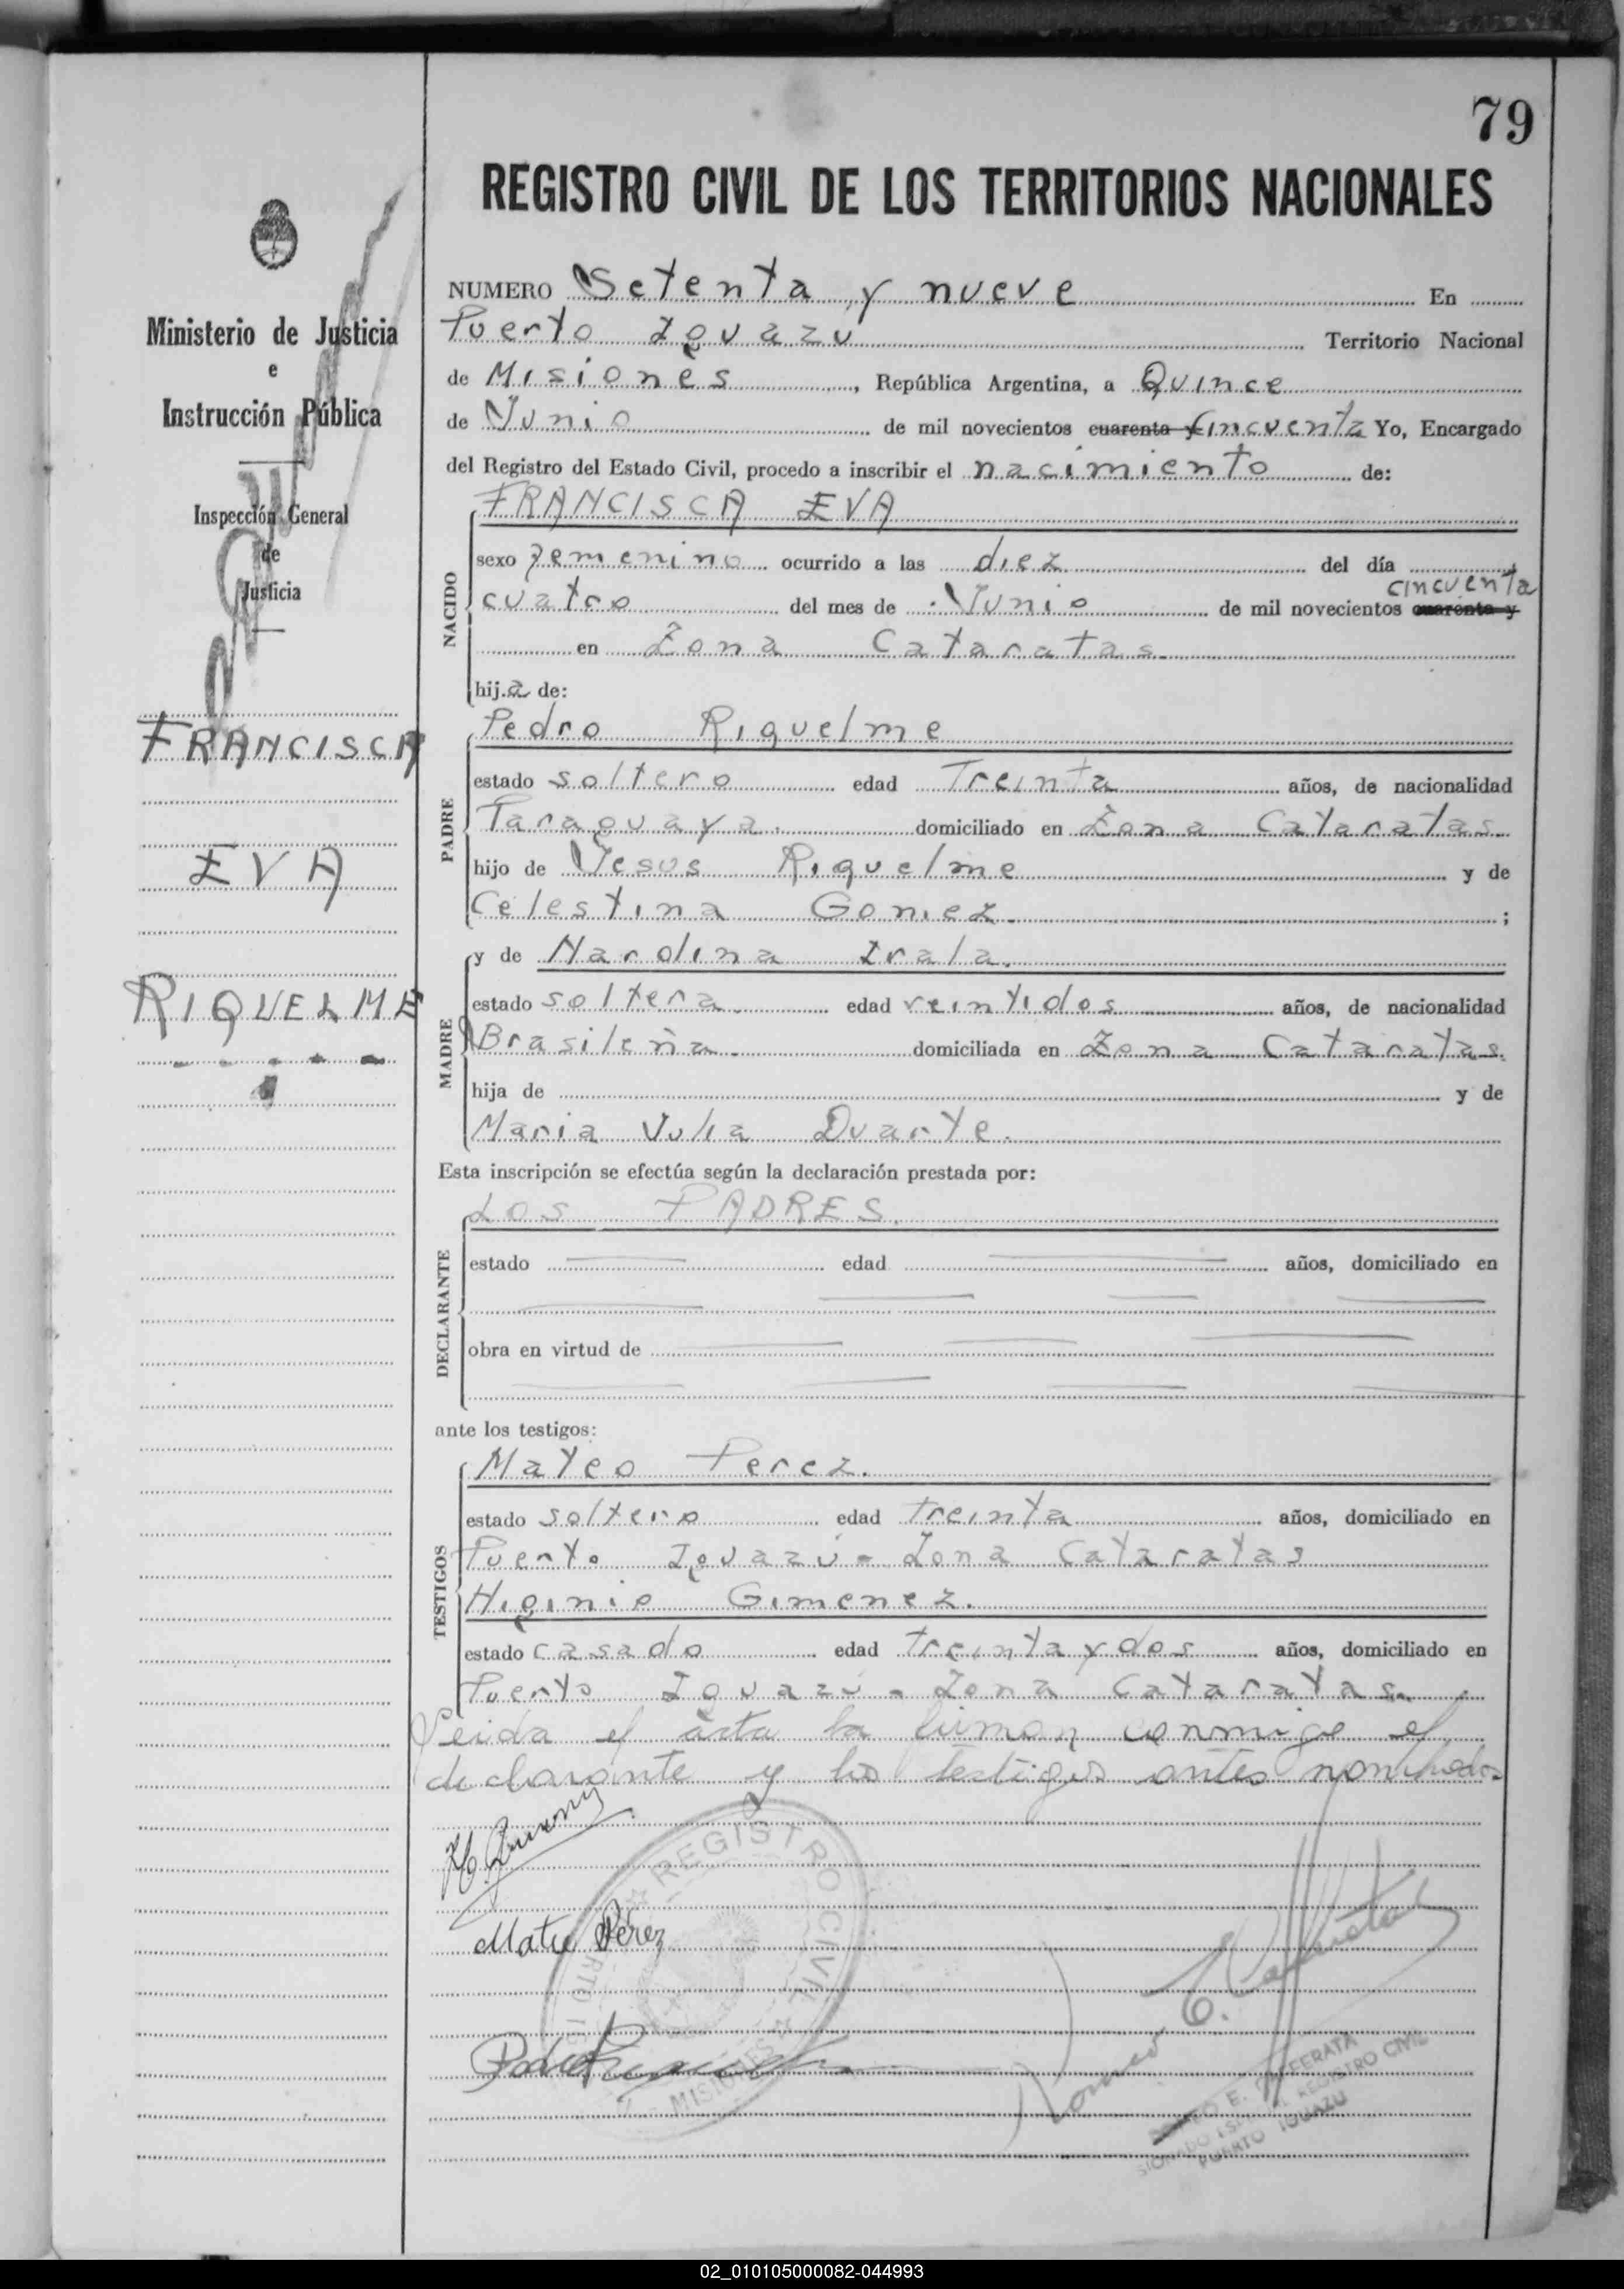 79
REGISTRO CIVIL DE LOS TERRITORIOS NACIONALES
Ministerio de Justicia
e
Instrucción Pública
Inspección General
de
Justicia
FRANCISCA
EVA
RIQUELME
NUMERO Setenta y nueve En
Puerto Iguazu Territorio Nacional
de Misiones, República Argentina, a Quince
de Junio de mil novecientos cuarenta y Cincuenta Yo, Encargado
del Registro del Estado Civil, procedo a inscribir el nacimiento de:
NACIDO
FRANCISCA EVA
sexo femenino ocurrido a las diez del día
cincuenta
cuatro del mes de Junio de mil novecientos cuarenta y
en Zona Cataratas
hija de:
PADRE
Pedro Riquelme
estado soltero edad Treinta años, de nacionalidad
Paraguaya. domiciliado en Zona Cataratas
hijo de Jesus Riquelme y de
Celestina Gomez. ;
MADRE
y de Narolina Irala.
estado soltera. edad veintidos años, de nacionalidad
Brasileña. domiciliada en Zona Cataratas.
hija de y de
Maria Julia Duarte.
Esta inscripción se efectúa según la declaración prestada por:
DECLARANTE
LOS PADRES.
estado edad años, domiciliado en
obra en virtud de
ante los testigos:
TESTIGOS
Mateo Perez.
estado soltero edad treinta años, domiciliado en
Puerto Iguazú - Zona Cataratas
Higinio Gimenez.
estado casado edad treinta y dos años, domiciliado en
Puerto Iguazú - Zona Cataratas.
Leida el acta la firman conmigo el
declarante y los testigos antes nombrados
REGISTRO CIVIL
MISIONES
Mateo Perez
Romeo E.
REGISTRO CIVIL
PUERTO IGUAZU
02_010105000082-044993